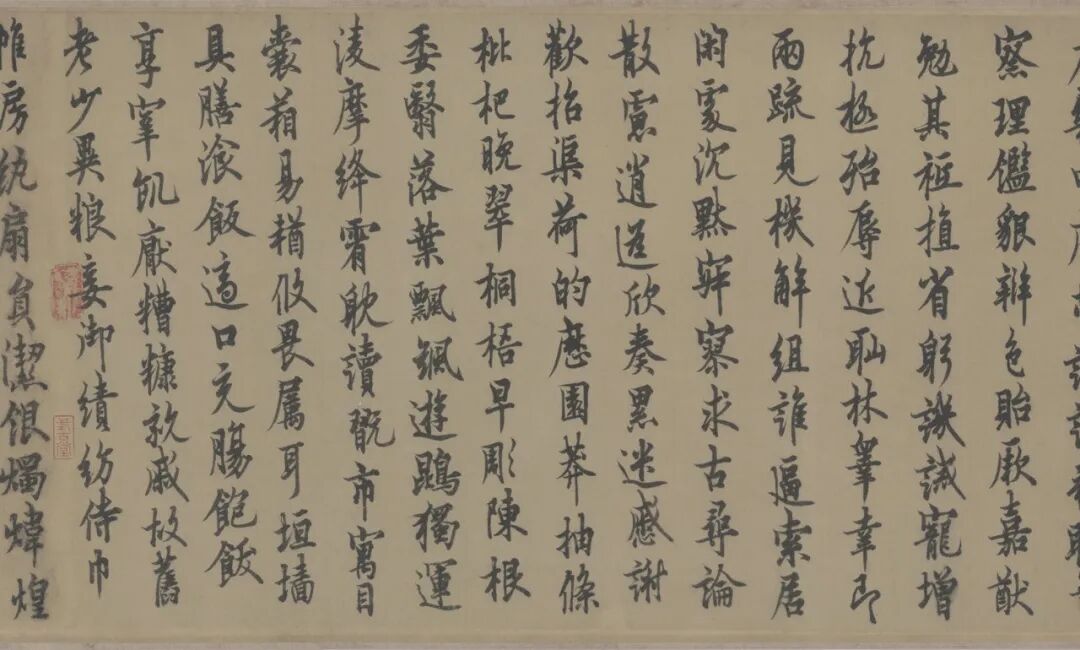 察理鑑貌辨色貽厥嘉猷
勉其祗植省躬譏誡寵增
抗極殆辱近耻林睾幸即
兩疏見機解組誰逼索居
閑處沉默寂寥求古尋論
散慮逍遥欣奏累遣慼謝
歡招渠荷的歷園莽抽條
枇杷晚翠桐梧早彫陳根
委翳落葉飄颻遊鵾獨運
淩摩絳霄耽讀翫市寓目
囊葙易輶攸畏属耳垣墻
具膳飡飯適口充腸飽飫
享宰飢厭糟糠親戚故舊
老少異粮妾御績紡侍巾
帷房紈扇員潔銀燭煒煌